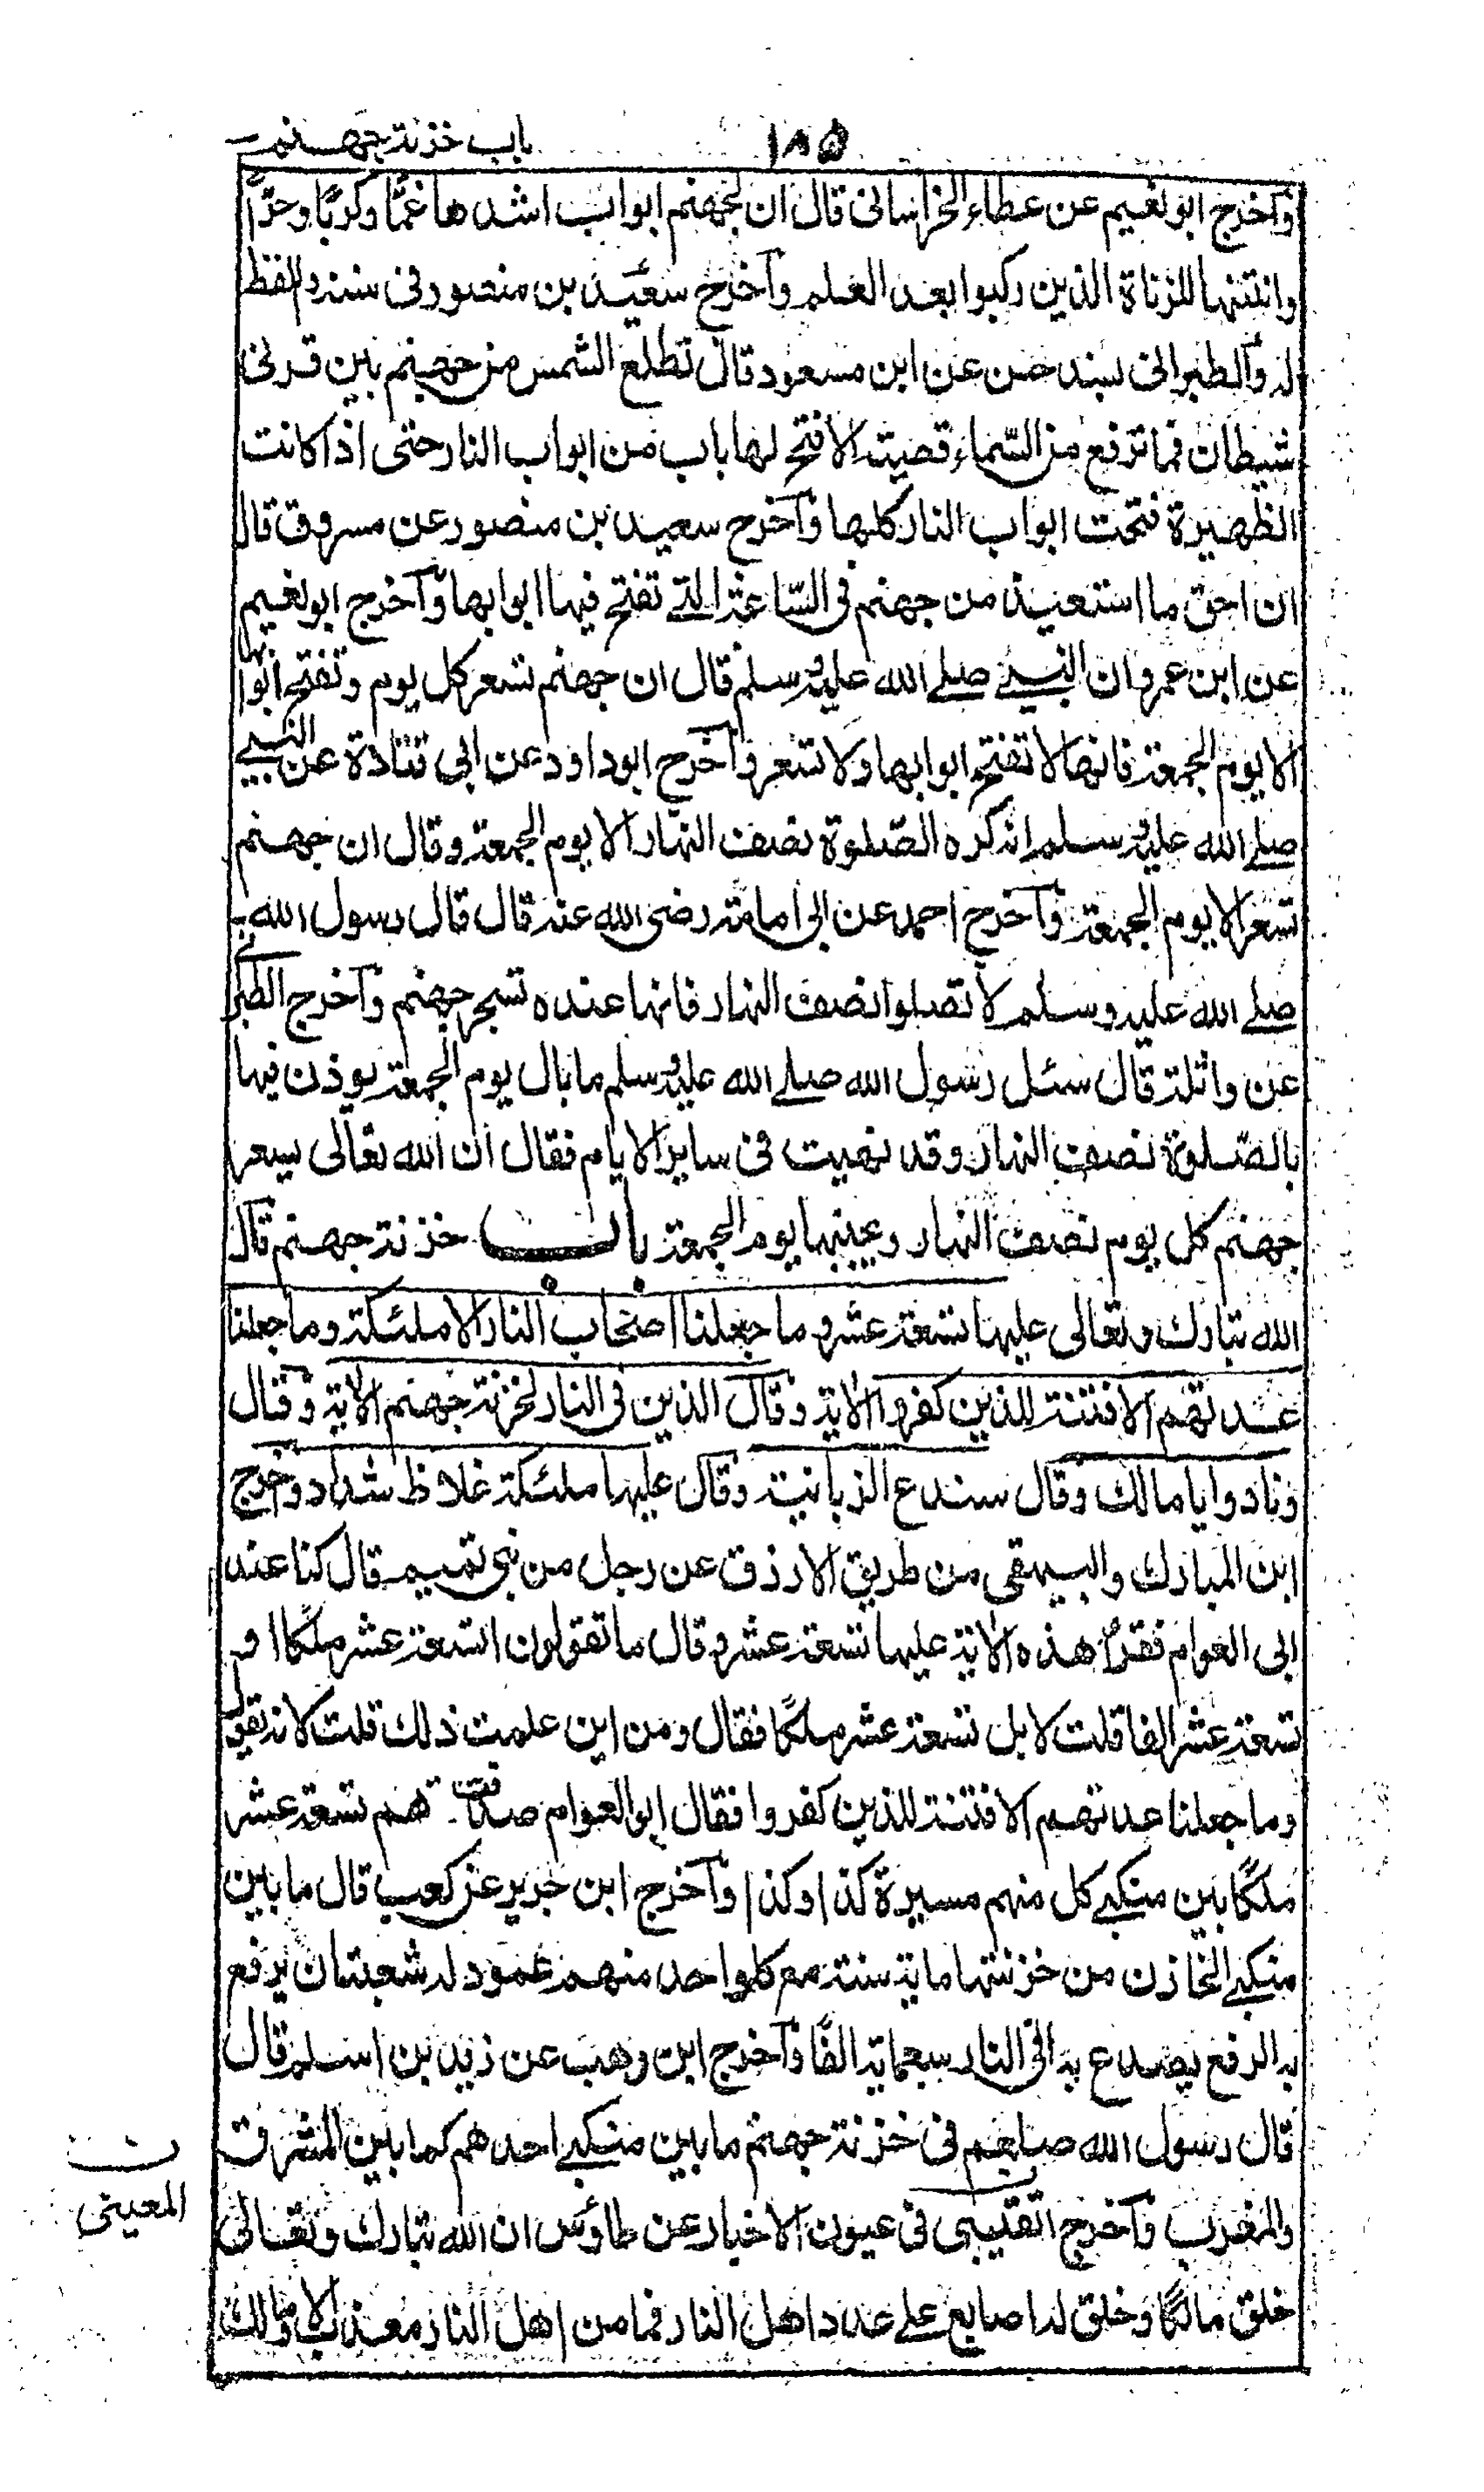 ١٨٥ باب خزنة جهنم
وآخرج ابو نعيم عن عطاء الخراسانى قال ان لجهنم ابواب اشدها غمًّا وكربًا وحرًّا
وانتنها للزناة الذين ركبوا بعد العلم وآخرج سعيد بن منصور فى سننه واللفظ
له وآلطبرانى بسند حسن عن ابن مسعود قال تطلع الشمس من جهنم بين قرنى
شيطان فما ترفع من السّماء قصبة الا فتح لها باب من ابواب النار حتى اذا كانت
الظهيرة فتحت ابواب النار كلها وآخرج سعيد بن منصور عن مسروق قال
ان احق ما استعيذ من جهنم فى السّاعة التے تفتح فيها ابوابها وآخرج ابو نعيم
عن ابن عمرو ان النبے صلے الله عليه وسلم قال ان جهنم تسعر كل يوم وتفتح ابوابها
الا يوم الجمعة فانها لا تفتح ابوابها ولا تسعر وآخرج ابو داود عن ابى قتادة عن النبے
صلے الله عليه وسلم انه كره الصّلوة نصف النهار الا يوم الجمعة وقال ان جهنم
تسعر الا يوم الجمعة وآخرج احمد عن ابى امامة رضى الله عنه قال قال رسول الله
صلے الله عليه وسلم لا تصلوا نصف النهار فانها عنده تسجر جهنم وآخرج الطبرانے
عن واثلة قال سئل رسول الله صلے الله عليه وسلم ما بال يوم الجمعة يوذن فيها
بالصّلوة نصف النهار وقد نهيت فى ساير الايام فقال ان الله تعالى يسعر
جهنم كل يوم نصف النهار ويخبيها يوم الجمعة باب خزنة جهنم قال
الله تبارك وتعالى عليها تسعة عشر وما جعلنا اصحاب النار الا ملئكة وما جعلنا
عدتهم الا فتنة للذين كفروا الآية وقال الذين فى النار لخزنة جهنم الآية وقال
ونادوا يا مالك وقال سندع الزبانية وقال عليها ملئكة غلاظ شداد وآخرج
ابن المبارك والبيهقى من طريق الارزق عن رجل من بنى تميم قال كنا عند
ابى العوام فقرأ هذه الآية عليها تسعة عشر وقال ما تقولون اتسعة عشر ملكا او
تسعة عشر الفا قلت لا بل تسعة عشر ملكًا فقال ومن اين علمت ذلك قلت لانه تقول
وما جعلنا عدتهم الا فتنة للذين كفروا فقال ابو العوام صدقت هم تسعة عشر
ملكًا بين منكبے كل منهم مسيرة كذا وكذا وآخرج ابن جرير عن كعب قال ما بين
منكبے الخازن من خزنتها ماية سنة مع كل واحد منهم عمود له شعبتان يرفع
به الرفع يصدع به فى النار سبعماية الفًا وآخرج ابن وهب عن زيد بن اسلم قال
قال رسول الله صلعم فى خزنة جهنم ما بين منكبے احدهم كما بين المشرق
والمغرب وآخرج القتيبى فى عيون الاخبار عن طاؤس ان الله تبارك وتعالى
خلق مالكًا وخلق له اصابع علے عدد اهل النار فما من اهل النار معذب الا ومالك
ت
المعينى